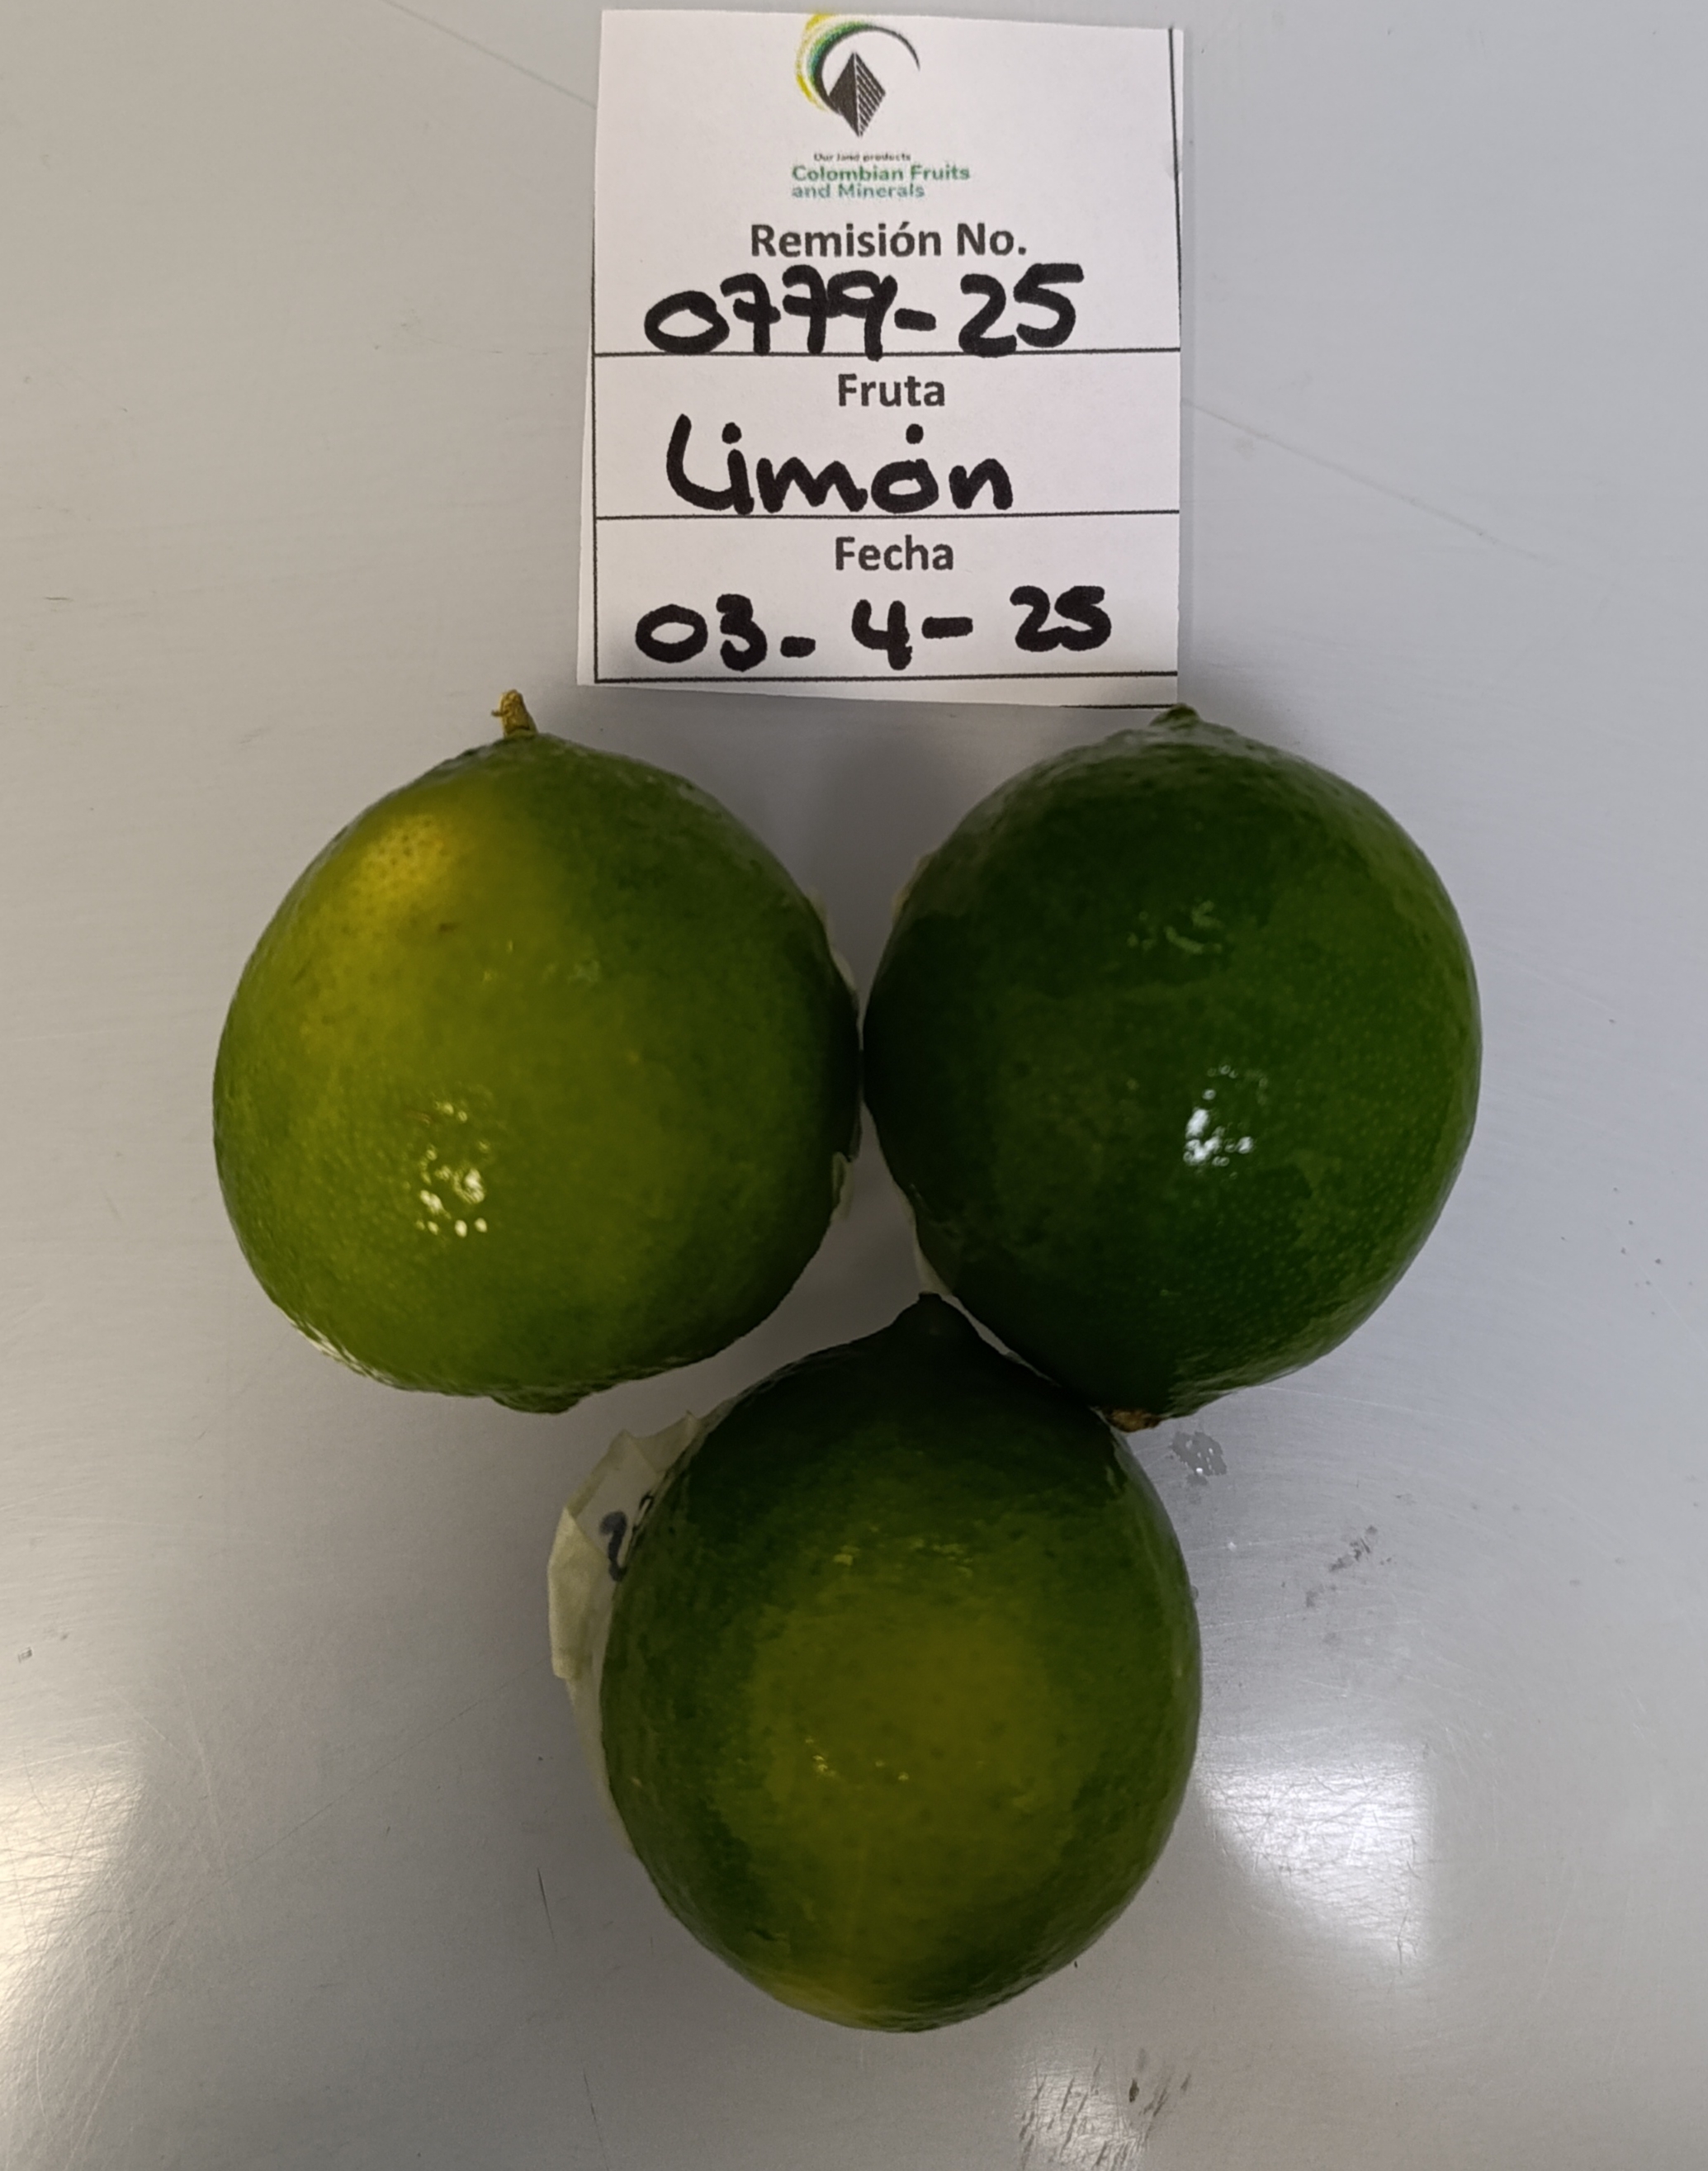 Our land products
Colombian Fruits
and Minerals
Remisión No.
0779-25
Fruta
Limón
Fecha
03-4-25